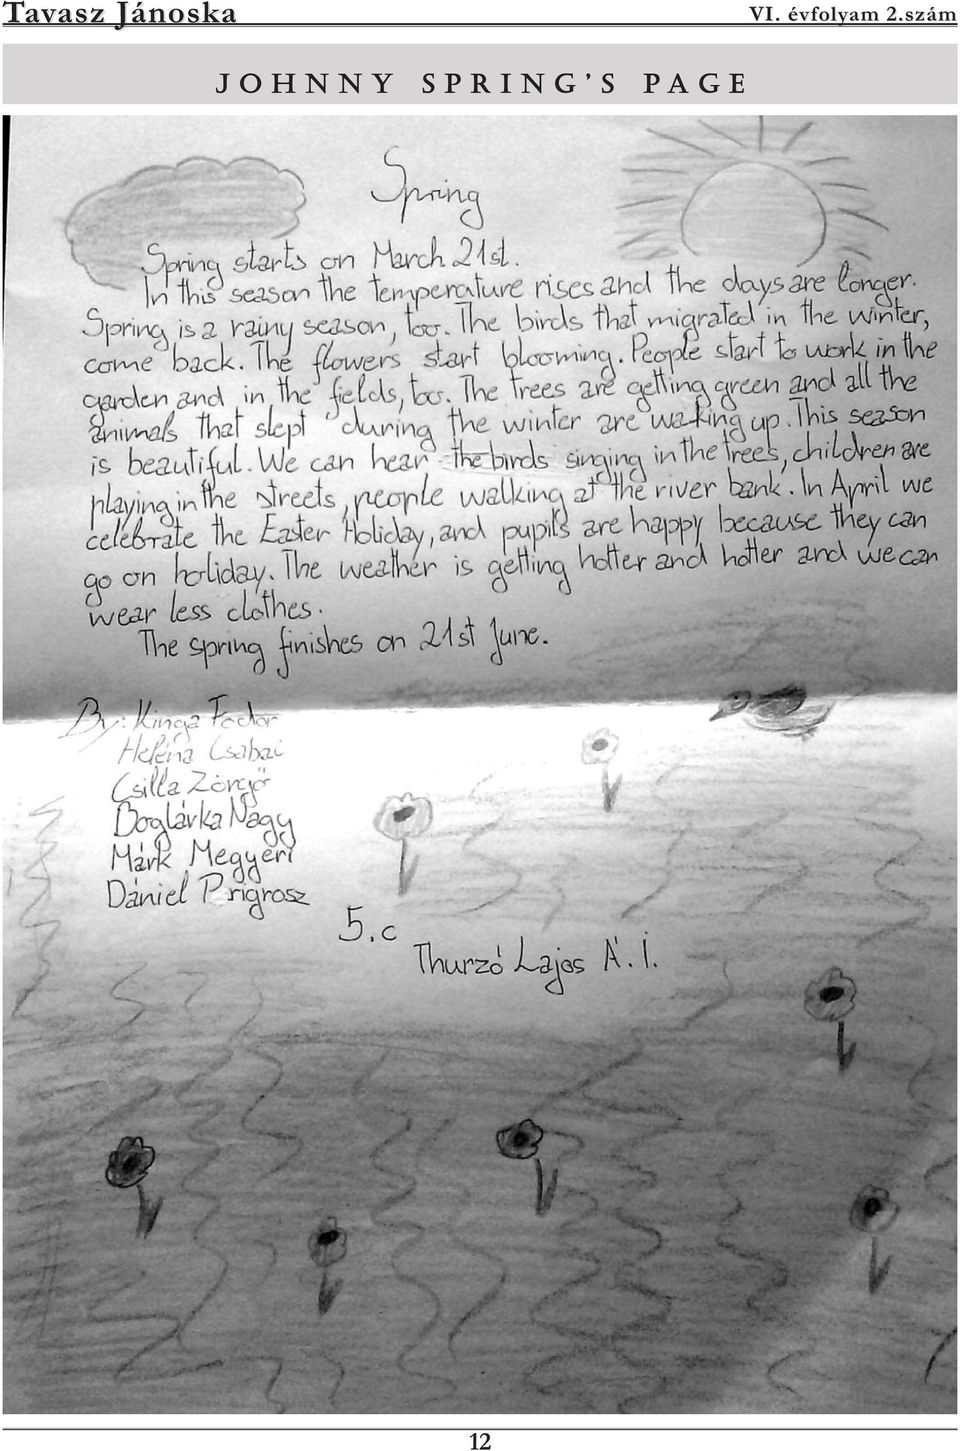 Tavasz Jánoska
VI. évfolyam 2.szám
JOHNNY SPRING'S PAGE
Spring
Spring starts on March 21st.
In this season the temperature rises and the days are longer.
Spring is a rainy season, too. The birds that migrated in the winter,
come back. The flowers start blooming. People start to work in the
garden and in the fields, too. The trees are getting green and all the
animals that slept during the winter are waking up. This season
is beautiful. We can hear the birds singing in the trees, children are
playing in the streets, people walking at the river bank. In April we
celebrate the Easter Holiday, and pupils are happy because they can
go on holiday. The weather is getting hotter and hotter and we can
wear less clothes.
The spring finishes on 21st June.
By: Kinga Fodor
Heléna Csabai
Csilla Zöngő
Boglárka Nagy
Márk Megyeri
Dániel Prigrosz
5.c
Thurzó Lajos Á. I.
12